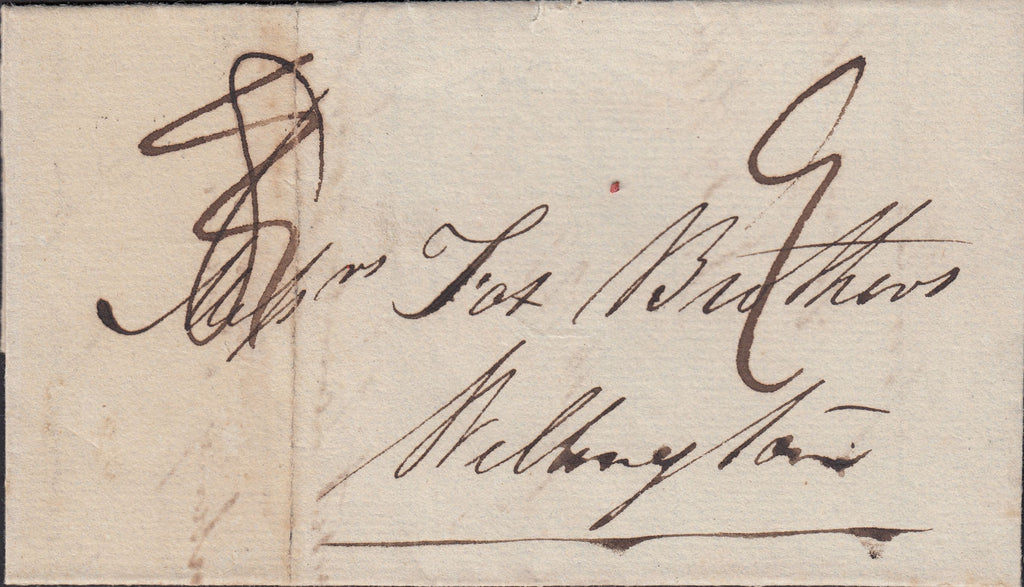 Messrs Fox Brothers
Wellington
9